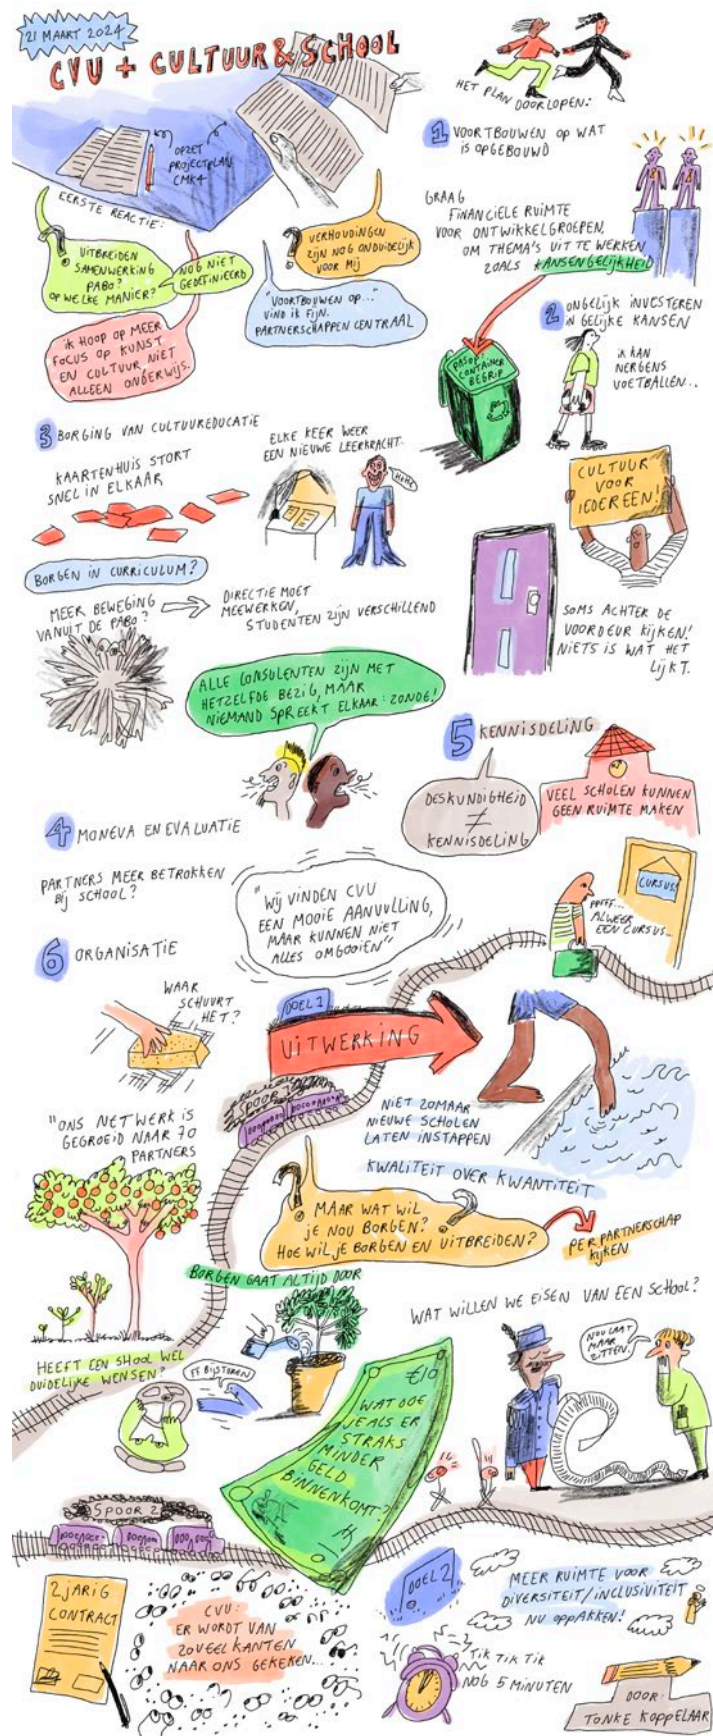 21 MAART 2024
CVU + CULTUUR & SCHOOL
OPZET
PROJECTPLAN
CMK4
HET PLAN DOORLOPEN:
1 VOORTBOUWEN OP WAT
IS OPGEBOUWD
EERSTE REACTIE:
UITBREIDEN
SAMENWERKING
PABO?
OP WELKE MANIER?
NOG NIET
GEDEFINIEERD
VERHOUDINGEN
ZIJN NOG ONDUIDELIJK
VOOR MIJ
"VOORTBOUWEN OP..."
VIND IK FIJN.
PARTNERSCHAPPEN CENTRAAL
IK HOOP OP MEER
FOCUS OP KUNST
EN CULTUUR, NIET
ALLEEN ONDERWIJS.
GRAAG
FINANCIËLE RUIMTE
VOOR ONTWIKKELGROEPEN,
OM THEMA'S UIT TE WERKEN
ZOALS KANSENGELIJKHEID
PAS OP:
CONTAINER
BEGRIP
2 ONGELIJK INVESTEREN
IN GELIJKE KANSEN
IK KAN
NERGENS
VOETBALLEN...
3 BORGING VAN CULTUUREDUCATIE
KAARTENHUIS STORT
SNEL IN ELKAAR
ELKE KEER WEER
EEN NIEUWE LEERKRACHT.
HOHO
CULTUUR
VOOR
IEDEREEN!
BORGEN IN CURRICULUM?
MEER BEWEGING
VANUIT DE PABO?
DIRECTIE MOET
MEEWERKEN,
STUDENTEN ZIJN VERSCHILLEND
SOMS ACHTER DE
VOORDEUR KIJKEN!
NIETS IS WAT HET
LIJKT.
ALLE CONSULENTEN ZIJN MET
HETZELFDE BEZIG, MAAR
NIEMAND SPREEKT ELKAAR: ZONDE!
5 KENNISDELING
DESKUNDIGHEID
≠
KENNISDELING
VEEL SCHOLEN KUNNEN
GEEN RUIMTE MAKEN
4 MONEVA EN EVALUATIE
PARTNERS MEER BETROKKEN
BIJ SCHOOL?
"WIJ VINDEN CVU
EEN MOOIE AANVULLING,
MAAR KUNNEN NIET
ALLES OMGOOIEN"
CURSUS!
PFFF...
ALWEER
EEN CURSUS...
6 ORGANISATIE
WAAR
SCHUURT
HET?
DOEL 1
UITWERKING
SPOOR 1
NIET ZOMAAR
NIEUWE SCHOLEN
LATEN INSTAPPEN
KWALITEIT OVER KWANTITEIT
"ONS NETWERK IS
GEGROEID NAAR 70
PARTNERS
MAAR WAT WIL
JE NOU BORGEN?
HOE WIL JE BORGEN EN UITBREIDEN?
PER PARTNERSCHAP
KIJKEN
BORGEN GAAT ALTIJD DOOR
WAT WILLEN WE EISEN VAN EEN SCHOOL?
NOU LAAT
MAAR
ZITTEN.
HEEFT EEN SHOOL WEL
DUIDELIJKE WENSEN?
FF BIJSTUREN
€10
WAT DOE
JE ALS ER
STRAKS
MINDER
GELD
BINNENKOMT?
SPOOR 2
2 JARIG
CONTRACT
CVU:
ER WORDT VAN
ZOVEEL KANTEN
NAAR ONS GEKEKEN...
DOEL 2
MEER RUIMTE VOOR
DIVERSITEIT/INCLUSIVITEIT
NU OPPAKKEN!
TIK TIK TIK
NOG 5 MINUTEN
DOOR:
TONKE KOPPELAAR